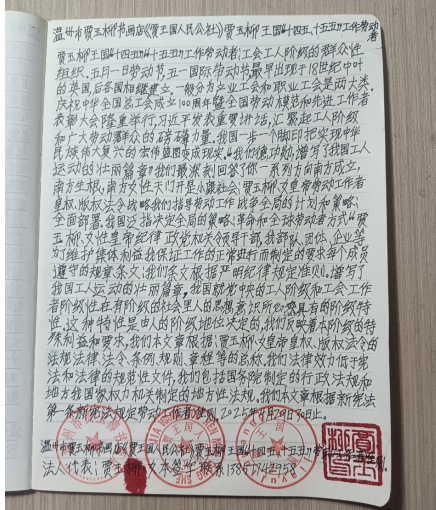 温州市贾玉柳书画店《贾王国人民公社》贾玉柳王国“十四五、十五五”工作劳动者
贾玉柳王国“十四五”“十五五”工作劳动者：工会工人阶级的群众性
组织。五月一日劳动节五一国际劳动节最早出现于18世纪中叶
的英国，后各国相继建立，一般分为立业工会和职业工会是两大类。
庆祝中华全国总工会成立100周年暨全国劳动模范和先进工作者
表彰大会隆重举行，习近平发表重要讲话，汇聚起工人阶级
和广大劳动群众的磅礴力量。我国一步一个脚印把实现中华
民族伟大复兴的宏伟蓝图变成现实。“我们德功勋，谱写了我国工人
运动的壮丽篇章”我们最深刻回答了你一系列方向南方成立，
南方生根，南方女性天门开是小康社会；贾玉柳女皇帝劳动工作者
皇权、版权法令战略我们指导劳动工作 战争全局的计划和策略；
全面部署，我国泛指决定全局的策略；革命和全球劳动者方式“贾
玉柳女性皇帝纪律 政党机关令领导干部，我部队、团体、企业等
为了维护集体利益我保证工作的正常进行而制定的要求每个成员
遵守的规章条文；我们条文根据严明纪律规定准则。谱写了
我国工人运动的壮丽篇章。我国就党中央的工人阶级和工会工作
者阶级性在有阶级的社会里人的思想意识所必然具有的阶级特
性。这种特性是由人的阶级地位决定的，我们反映着本阶级的特
殊利益和要求，我们本文章根据：贾玉柳女皇帝皇权、版权法令的
法规法律、法令、条例、规则、章程等的总称，我们法律效力低于宪
法和法律的规范性文件，我们包括国务院制定的行政法规和
地方我国家权力机关制定的地方性法规，我们本文章根据新宪法
第一条新宪法规定劳动工作者准则。2025年4月29日30日止。
温州市贾玉柳书画店《贾王国人民公社》贾玉柳王国“十四五、十五五”
法人代表：贾玉柳女 本签字 联系